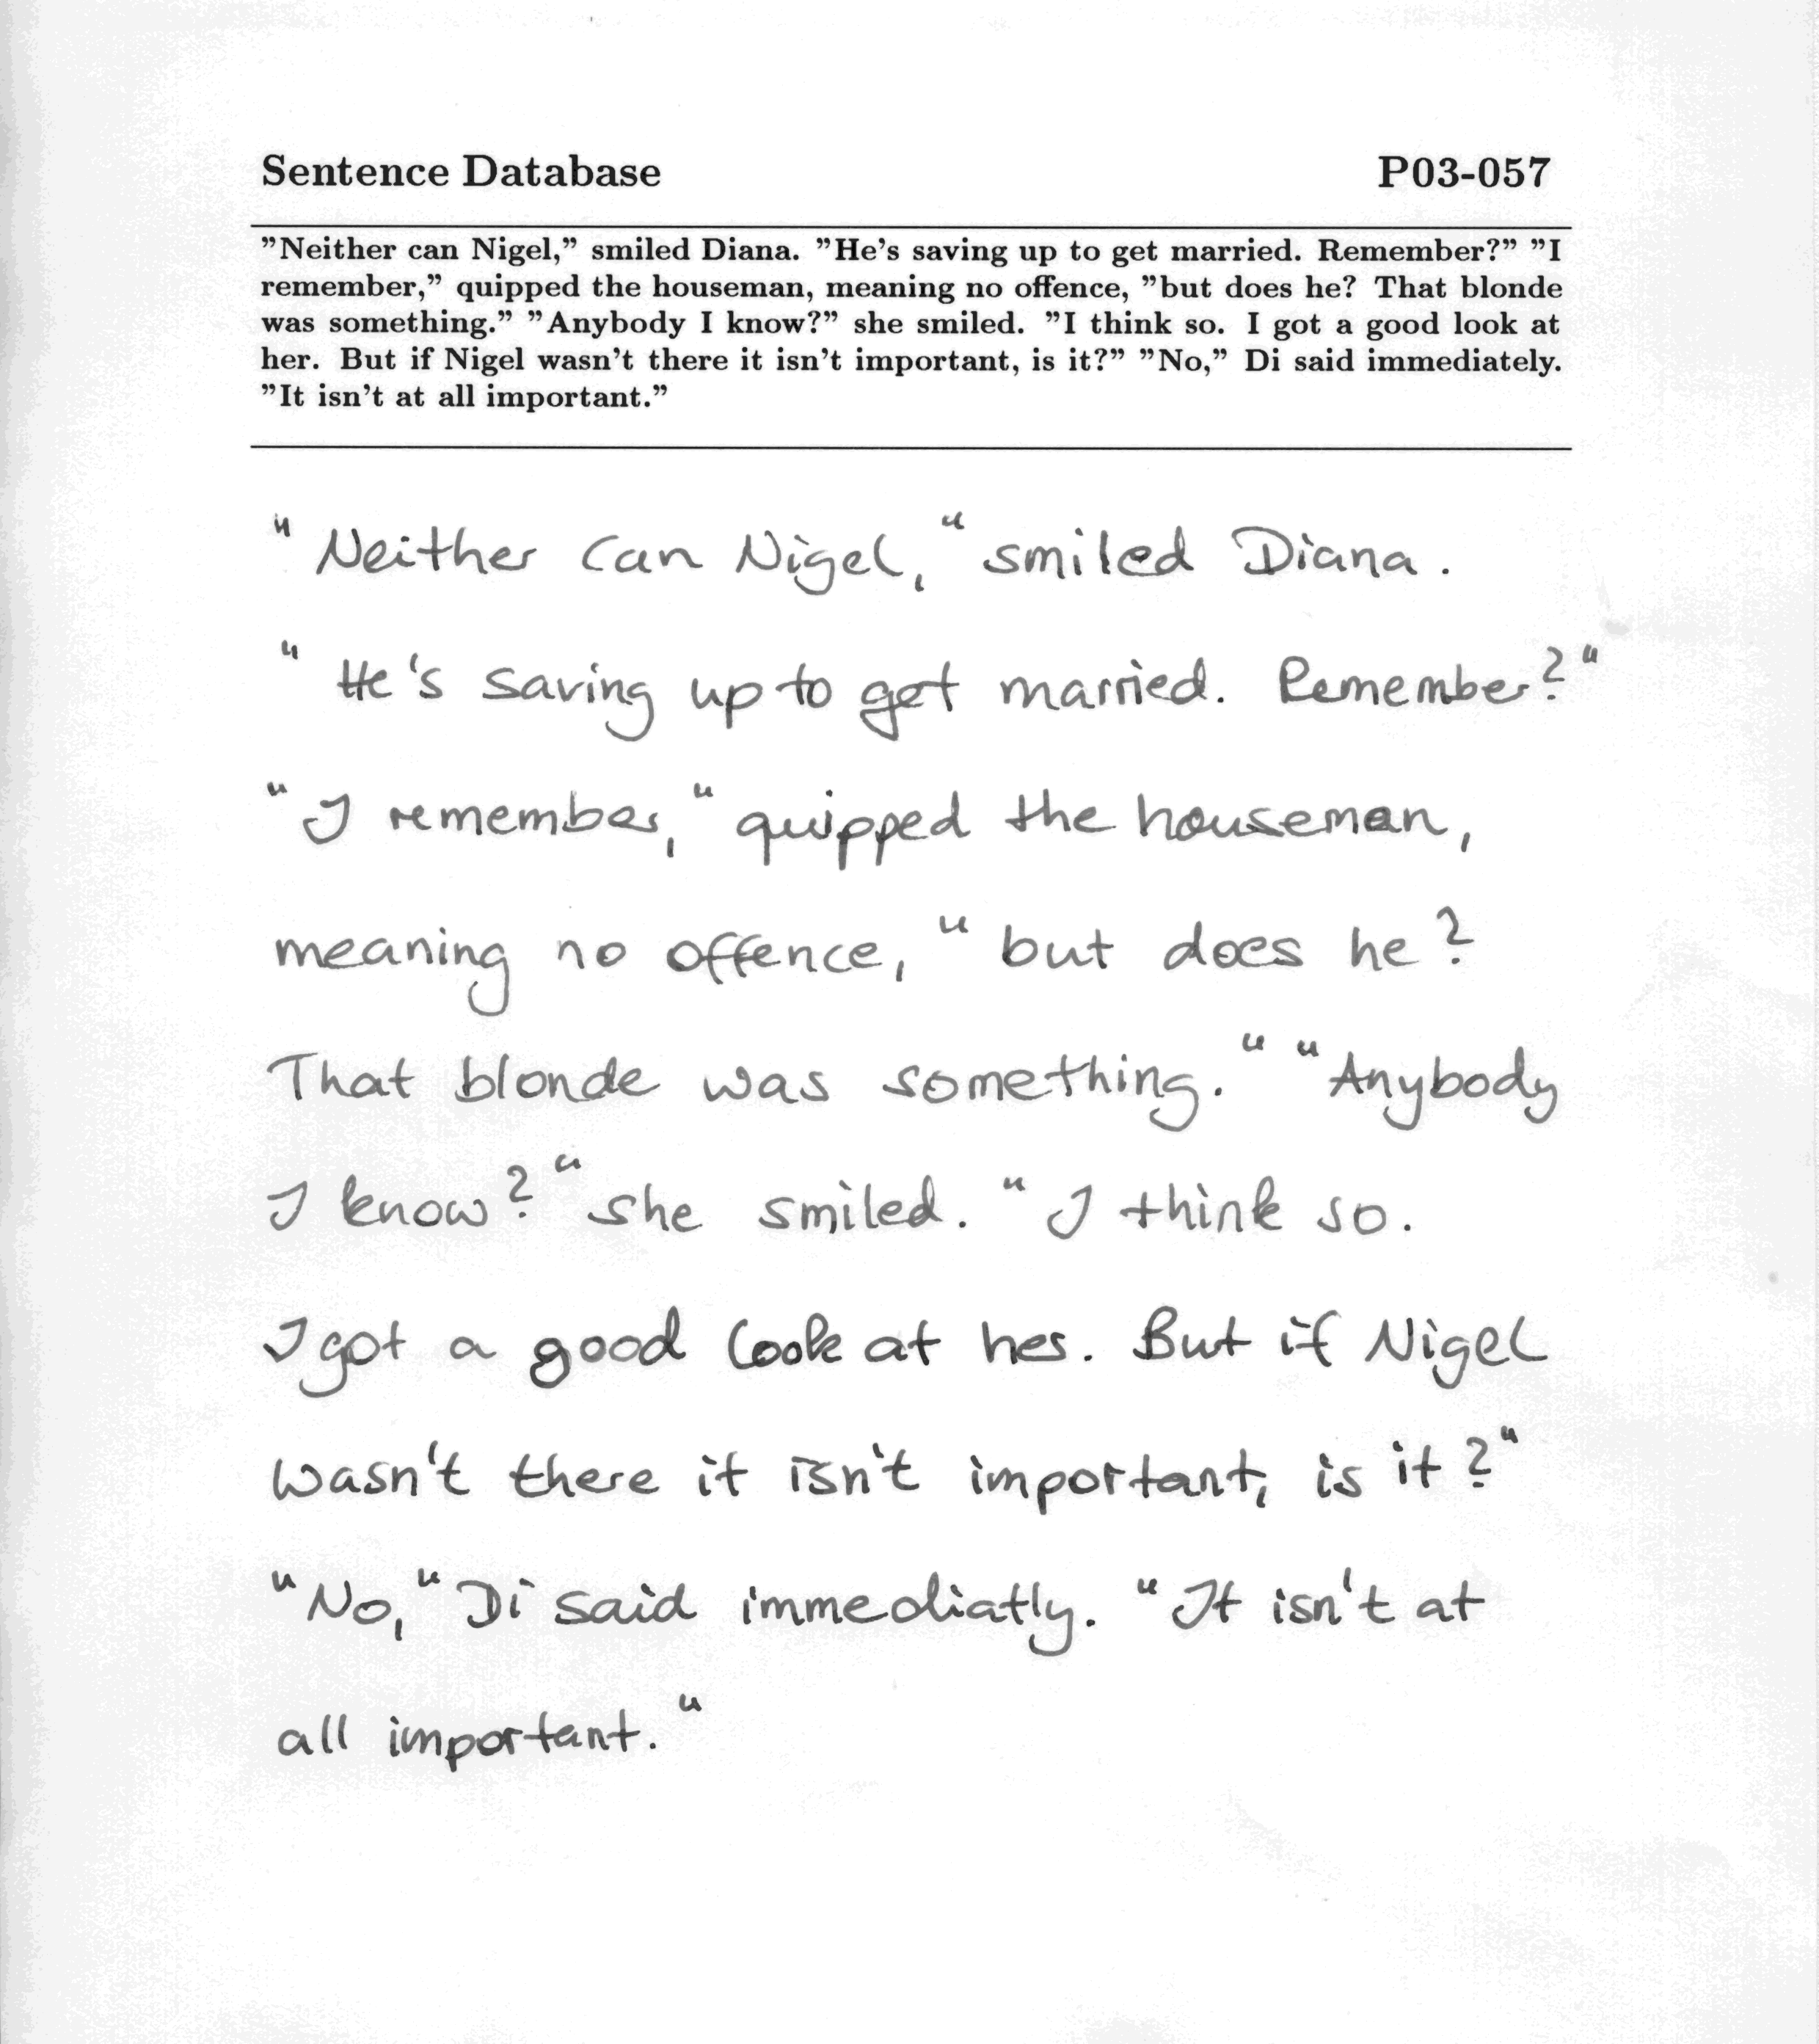 Sentence Database P03-057
”Neither can Nigel,” smiled Diana. ”He’s saving up to get married. Remember?” ”I
remember,” quipped the houseman, meaning no offence, ”but does he? That blonde
was something.” ”Anybody I know?” she smiled. ”I think so. I got a good look at
her. But if Nigel wasn’t there it isn’t important, is it?” ”No,” Di said immediately.
”It isn’t at all important.”
"Neither can Nigel," smiled Diana.
"He's saving up to get married. Remember?"
"I remember," quipped the houseman,
meaning no offence, "but does he?
That blonde was something." "Anybody
I know?" she smiled. "I think so.
I got a good look at her. But if Nigel
wasn't there it isn't important, is it?"
"No," Di said immediatly. "It isn't at
all important."